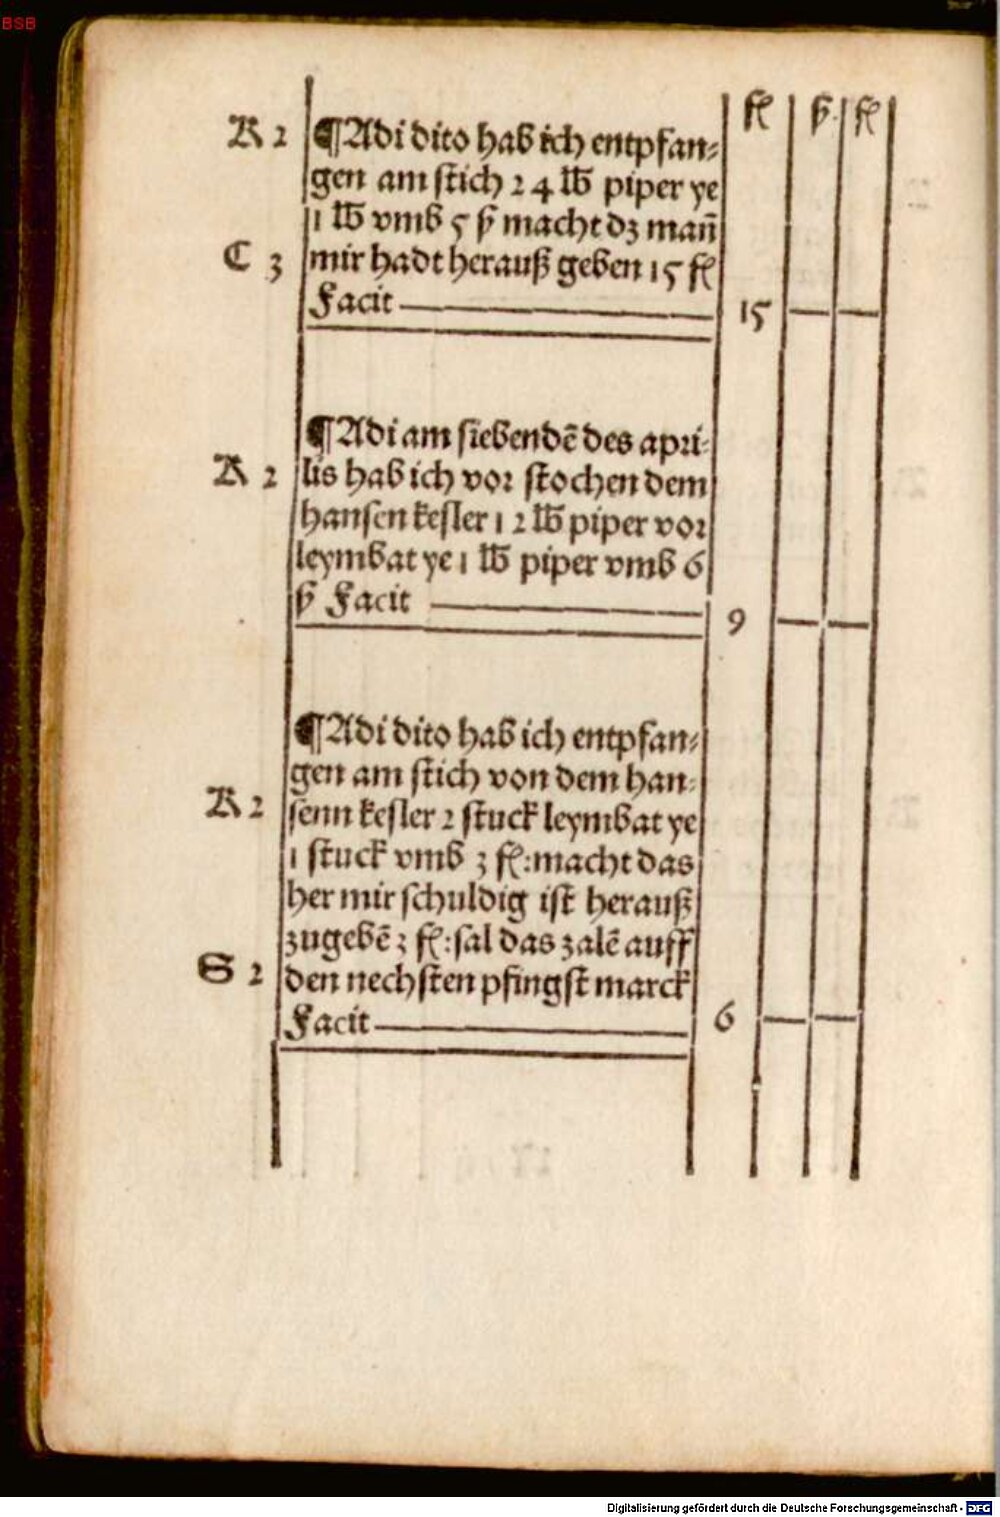 BSB
fl ß fl
K 2 ¶Adi dito hab ich entpfan⸗
gen am stich 24 lb piper ye
1 lb vmb 5 ß macht dz mañ
C 3 mir hadt herauß geben 15 fl
Facit 15 — —
¶Adi am siebendē des apri⸗
K 2 lis hab ich vor stochen dem
hansen kesler 12 lb piper vor
leymbat ye 1 lb piper vmb 6
ß Facit 9 — —
¶Adi dito hab ich entpfan⸗
gen am stich von dem han⸗
K 2 senn kesler 2 stuck leymbat ye
1 stuck vmb 3 fl:macht das
her mir schuldig ist herauß
zugebē 3 fl:sal das zalē auff
S 2 den nechsten pfingst marck
Facit 6 — —
Digitalisierung gefördert durch die Deutsche Forschungsgemeinschaft - DFG